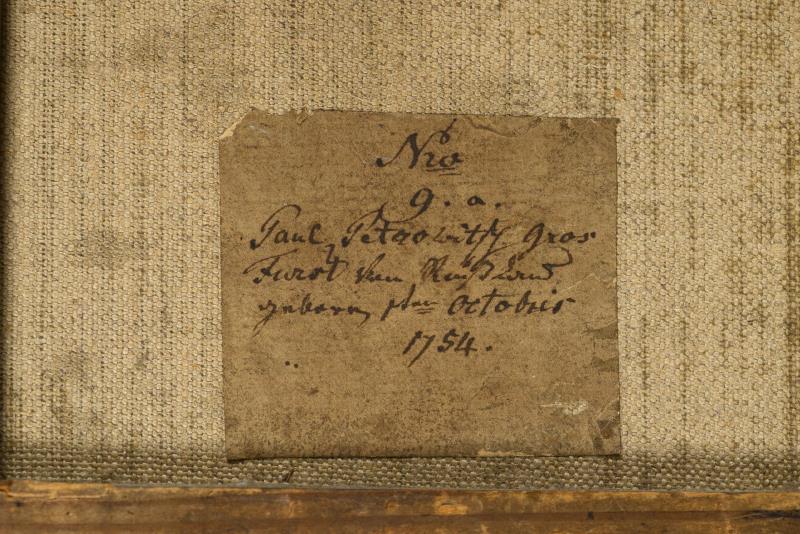 Nro
9. a.
Paul Petrowitz Gros
Furst von Rußland
geboren 1ten Octobris
1754.